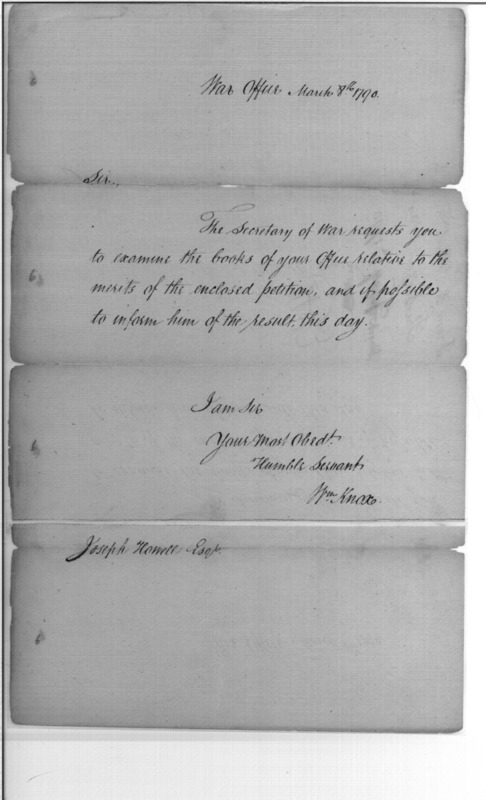 War Office March 8th 1790.
Sir,
The Secretary of War requests you
to examine the books of your Office relative to the
merits of the enclosed petition, and if possible
to inform him of the result, this day.
I am Sir
Your Most Obedt.
Humble Servant
Wm Knox.
Joseph Howell Esqr.